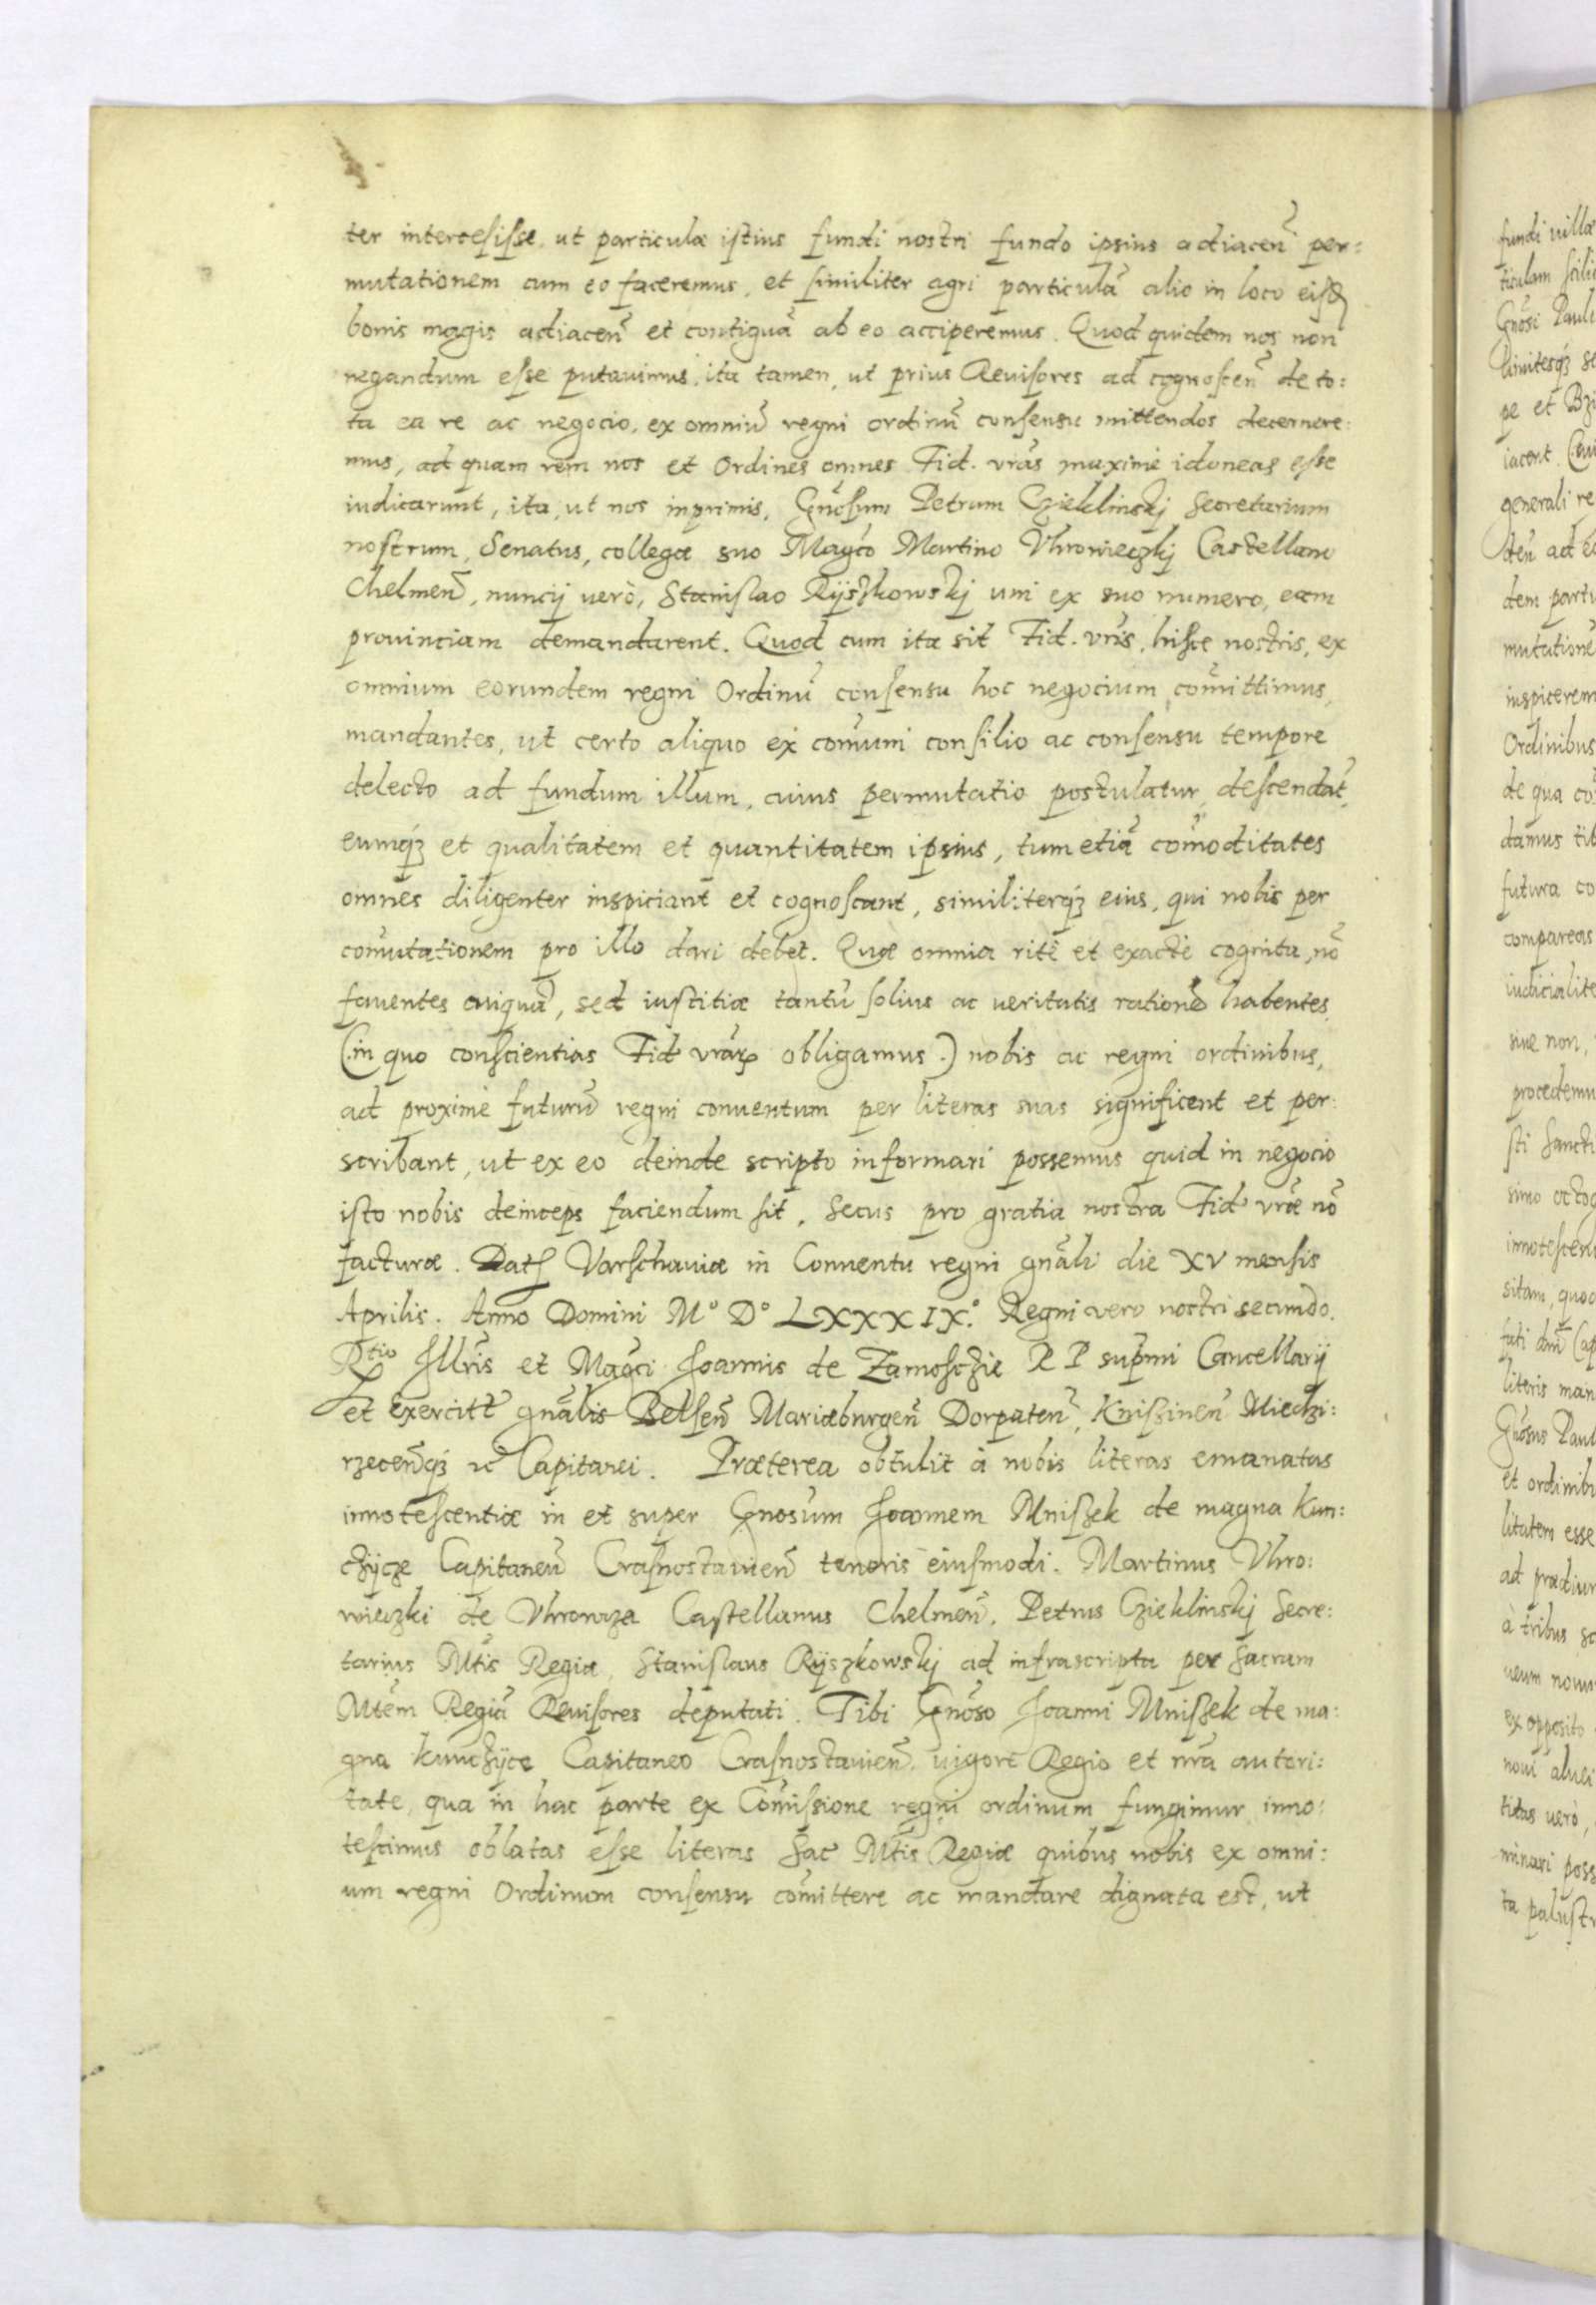 ter intercesisse, ut particulæ istius fundi nostri fundo ipsius adiaceñ per:
mutationem cum eo faceremus, et similiter agri particulã alio in loco eisd
bonis magis adiaceñ et contiguã ab eo acciperemus. Quod quidem nos non
negandum esse putauimus, ita tamen, ut prius Reuisores ad cognosceñ de to:
ta ea re ac negocio, ex omniũ regni ordinũ consensu mittendos decernere:
mus, ad quam rem nos et Ordines omnes Fid. vrãs maxime idoneas esse
iudicarunt, ita, ut nos inprimis, Gñosum Petrum Czieklinskj Secretarium
nostrum, Senatus, collegæ suo Magco Martino Vhrowieczkj Castellano
Chelmeñ, nuncij uerò, Stanislao Rijszkowskj uni ex suo numero, eam
prouinciam demandarent. Quod cum ita sit Fid. vrĩs, hisce nostris, ex
omnium eorundem regni Ordinũ consensu hoc negocium, com̃ittimus,
mandantes, ut certo aliquo ex com̃uni consilio ac consensu tempore
delecto ad fundum illum, cuius permutatio postulatur, descendãt,
eumqȝ et qualitatem et quantitatem ipsius, tum etiã com̃oditates
omnes diligenter inspiciant et cognoscant, similiterqȝ eius, qui nobis per
com̃utationem pro illo dari debet. Quæ omnia ritè et exactè cognita, nõ
fauentes cuiquã, sed iustitiæ tantũ solius ac ueritatis rationẽ habentes,
(:in quo conscientias Fid vrãrꝝ obligamus:) nobis ac regni ordinibus,
ad proximè futurũ regni conuentum per literas suas significent et per:
scribant, ut ex eo deinde scripto informari possemus quid in negocio
isto nobis deinceps faciendum sit. Secus pro gratia nostra Fid vræ nõ
facturæ. Datꝭ Varschauiæ in Conuentu regni gñali die XV mensis
Aprilis. Anno Domini M° D° LXXXIX.° Regni vero nostri secundo.
Rtio Illrĩs et Magci Joannis de Zamosczie R P supmi Cancellarij
et exercitꝰ gnãlis Belseñ Mariæburgeñ Dorpateñ, Knissineñ Miedzi:
rzeceñqȝ ꝛc Capitanei. Præterea obtulit à nobis literas emanatas
innotescentiæ in et super Gnosum Joannem Mnisek de magna Kun:
czijcze Capitaneũ Crasnostauieñ tenoris eiusmodi. Martinus Vhro:
wieczki de Vhrowza Castellanus Chelmeñ. Petrus Czieklinskj Secre:
tarius Mtĩs Regiæ, Stanislaus Rijszkowskj ad infrascripta per Sacram
Mtẽm Regiã Reuisores deputati. Tibi Gñoso Joanni Mnisek de ma:
gna Kunczijce Capitaneo Crasnostauieñ, uigore Regio et nrã autori:
tate, qua in hac parte ex Com̃issione regni ordinum fungimur, inno:
tescimus oblatas esse literas Sac Mtĩs Regiæ quibus nobis ex omni:
um regni Ordinum consensu com̃ittere ac mandare dignata est, ut